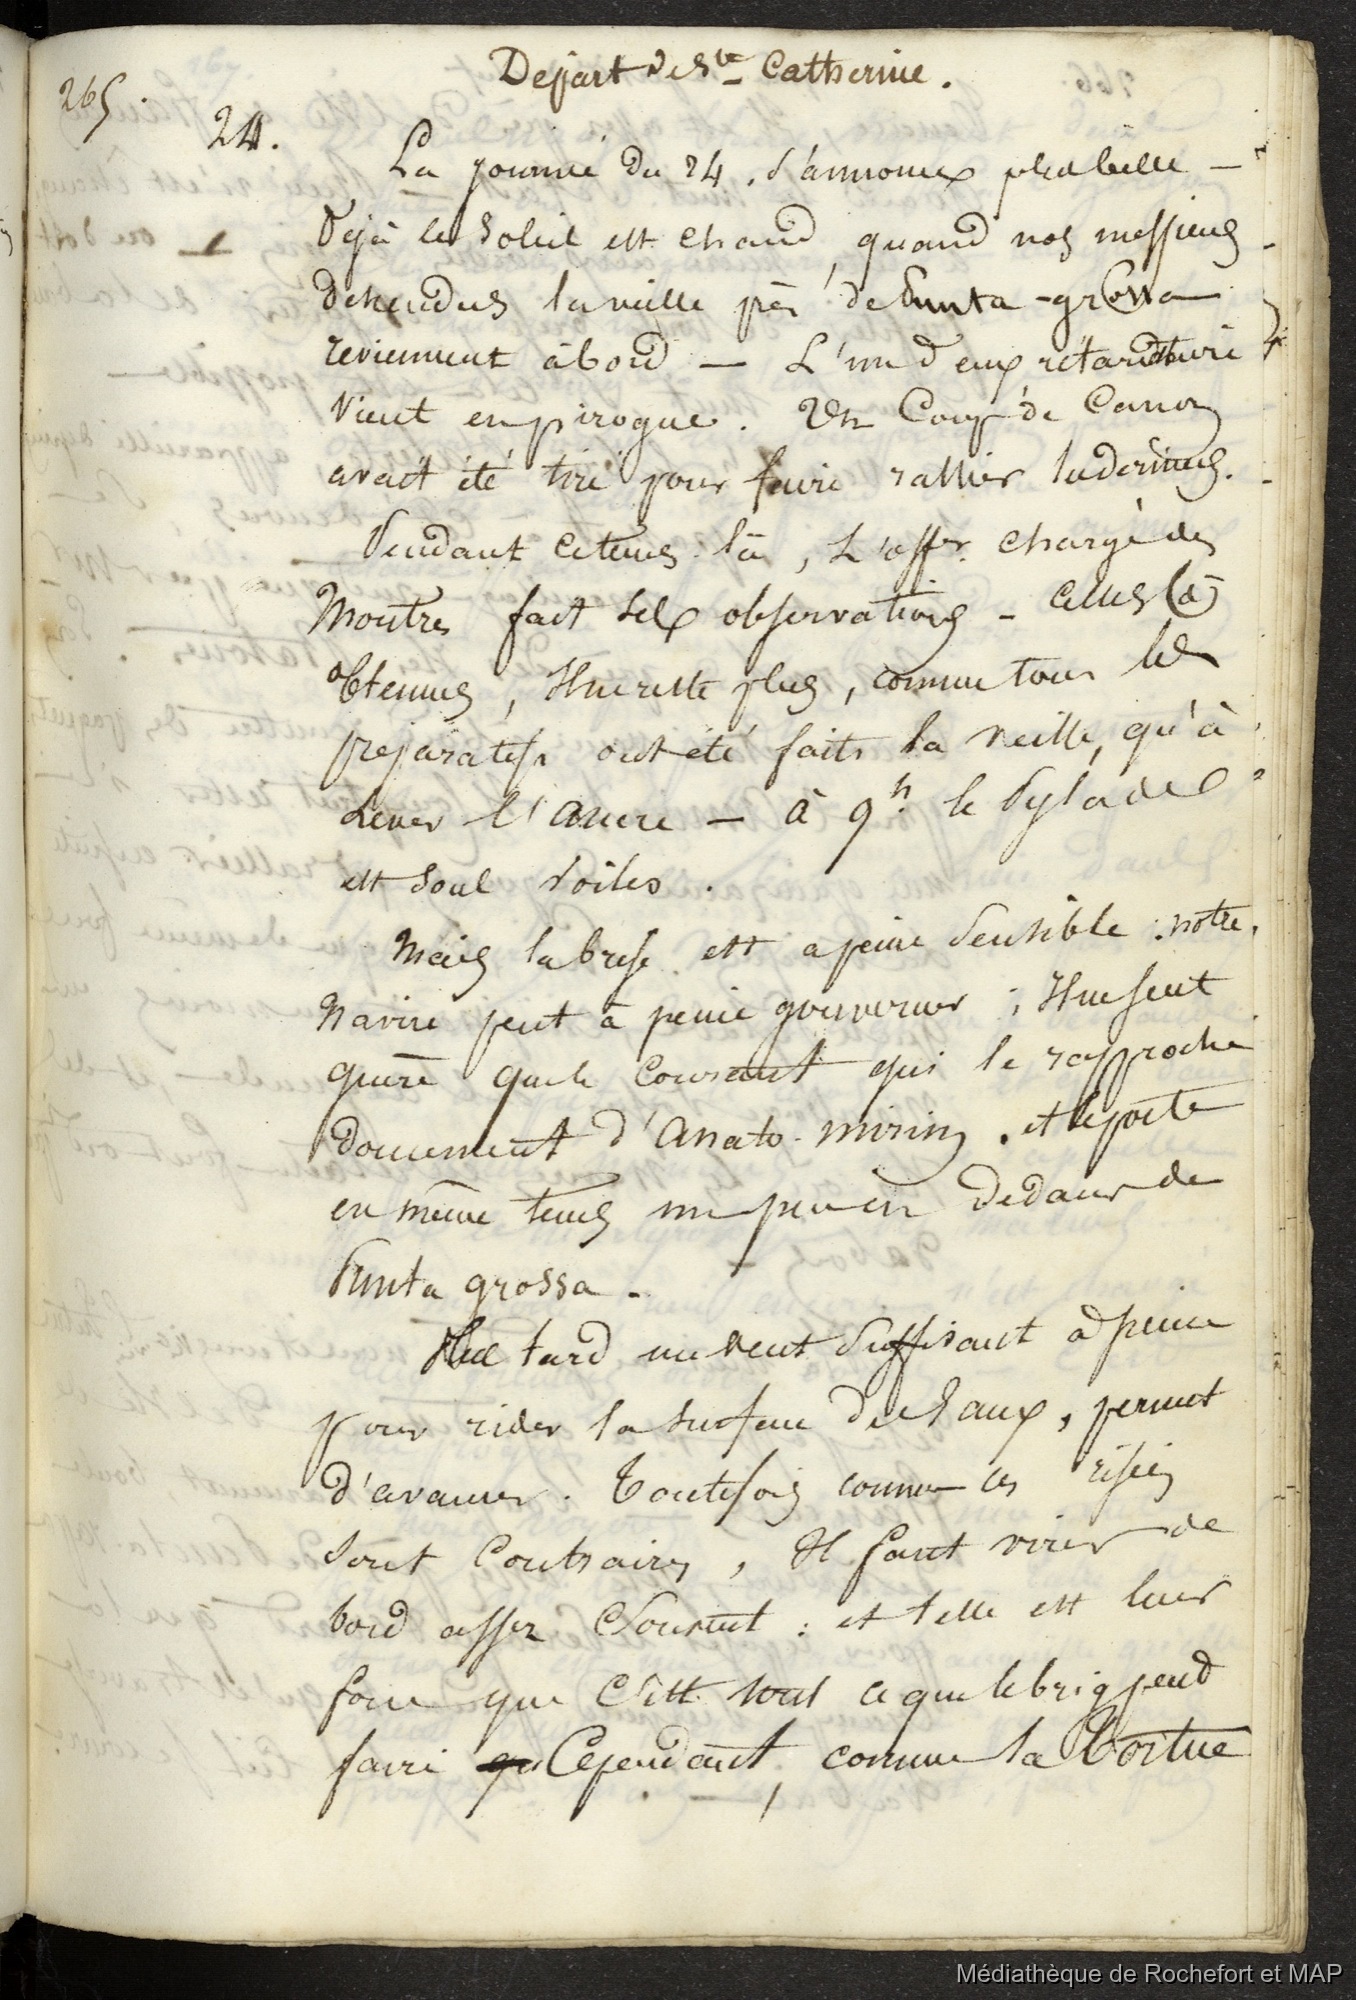 265.
Depart de Ste Catherine.
24.
La journée du 24. s'annonce plus belle —
Déjà le soleil est chaud, quand nos messieurs
descendus la veille près de Punta-grossa
reviennent à bord — L'un d'eux retardataire
vient en pirogue. Un Coup de Canon
avait été tiré pour faire rallier
Pendant ce tems là, L'offer. chargé des
Montres fait ses observations — celles là
obtenues, Il ne reste plus, comme tous les
préparatifs ont été faits la veille, qu'à
Lever l'ancre — à 9h. le Pylade
est sous voiles.
Mais la brise est a peine sensible : notre
Navire peut à peine gouverner ; Il ne sent
guère que le Courant qui le rapproche
doucement d'Anato-mirim. et le porte
en même tems un peu en dedans de
Punta grossa.
Plus tard un vent suffisant à peine
pour rider la surface des Eaux, permet
d'avancer. Toutefois comme ces risées
sont Contraires, Il faut virer de
bord assez souvent : et telle est leur
force que c'est tout ce que le brig peut
faire Cependant, comme la Tortue
Médiathèque de Rochefort et MAP